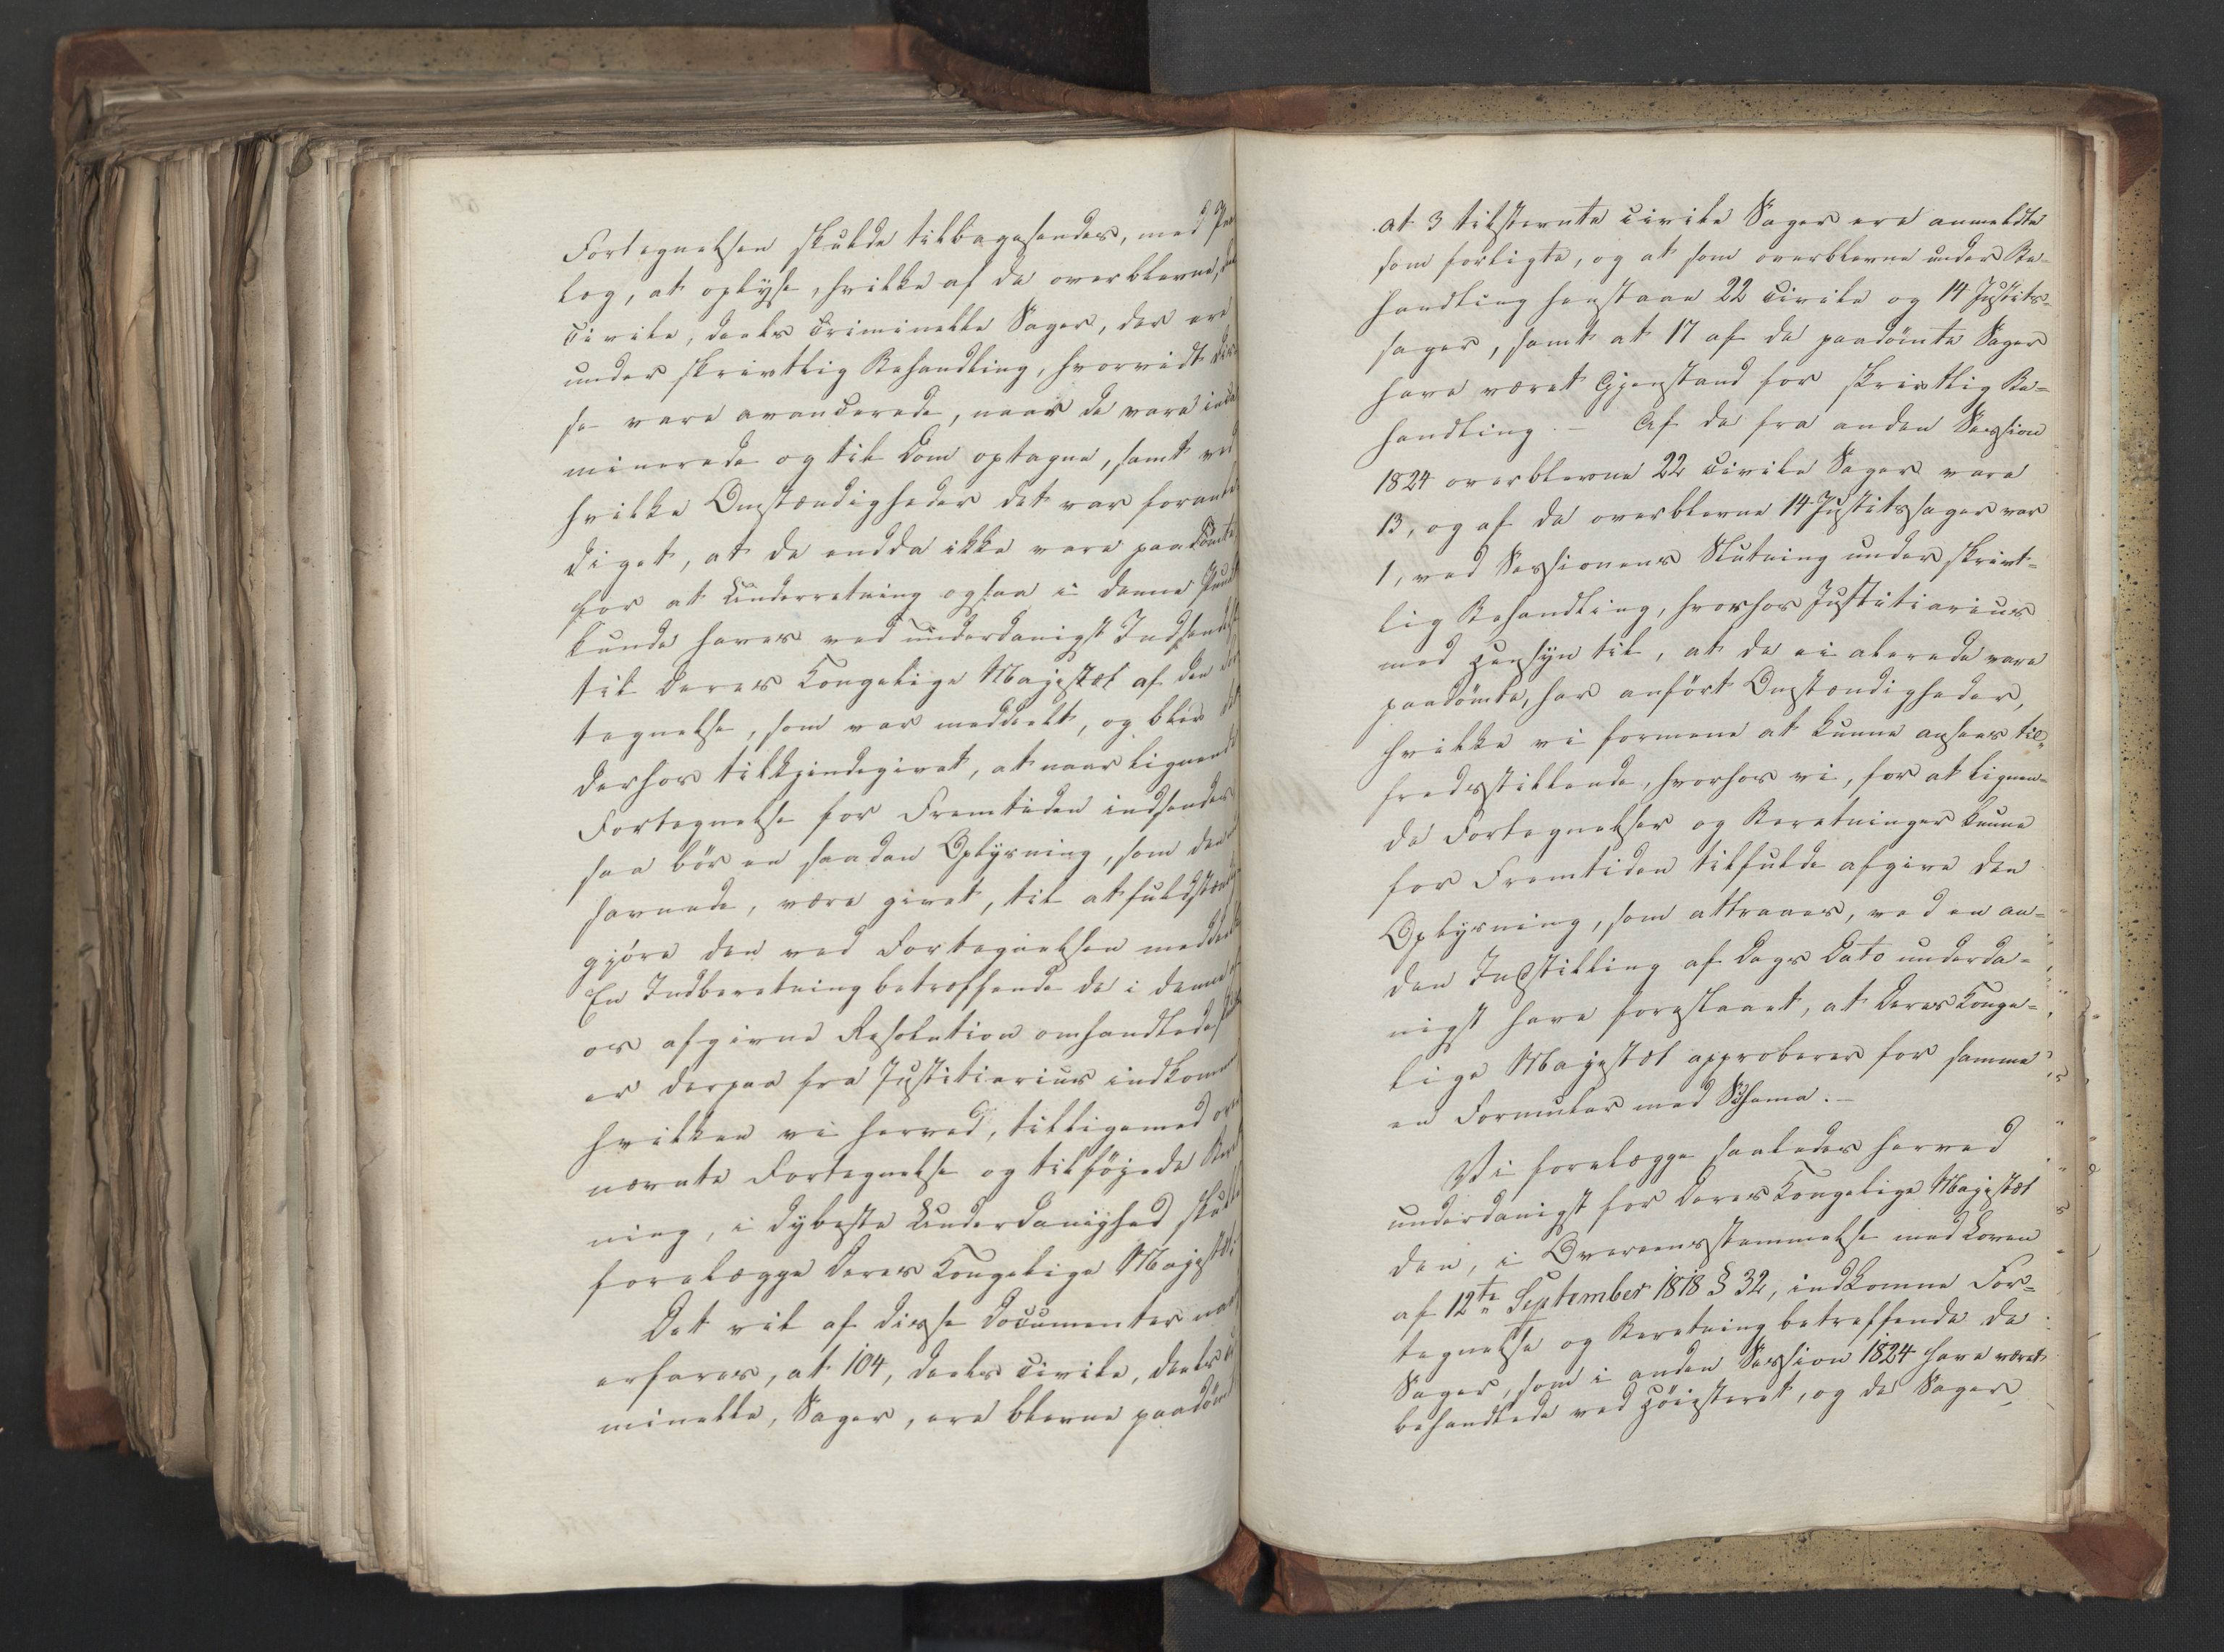 Fortegnelsen skulde tilbagesendes, med Paa
læg, at oplyse, hvilke af de overblevne, deels
civile, deels Criminelle Sager, der ere
under skrivtlig Behandling, hvorvidt dis
se vare avancerede, naar de vare incam
minerede og til Dom optagne, samt ved
hvilke Omstændigheder det var foranle
diget, at de endda ikke vare paadömte,
for at Underretning ogsaa i denne Punct
kunde haves ved underdanigst Indsendelse
til Deres Kongelige Majestæt af den For
tegnelse, som var meddeelt, og blev det
derhos tilkjendegivet, at naar lignende
Fortegnelse for Fremtiden indsendes
saa bör en saadan Oplysning, som den nu
savnede, være givet, til at fuldstændig
gjöre den ved Fortegnelsen meddeelte
En Indberetning betræffende de i denne af
os afgivne Resolution omhandlede
er derpaa fra Justitiarius indkommen
hvilken vi herved, tilligemed oven
nævnte Fortegnelse og tilföjede Beret
ning, i dybeste Underdanighed skulle
forelægge Deres Kongelige Majestæt
Det vil af disse Documenter
erfares, at 104, deels civile, deels cri
minelle, Sager, ere blevne paadömte
at 3 tilstevnte civile Sager ere anmeldte
som forligte, og at som overblevne under Be-
handling henstaae 22 Civile og 14 Justits-
sager, samt at 17 af de paadömte Sager
have været Gjenstand for skrivtlig Be-
handling. – Af de fra anden Session
1824 overblevne 22 civile Sager vare
13, og af de overblevne 14 Justitssager var
1, ved Sessionens Slutning under skrivt-
lig Behandling, hvorhos Justitiarius
med Hensyn til, at de ei allerede vare
paadömte, har anfört Omstændigheder,
hvilke vi formene at kunne ansees til-
fredsstillende, hvorhos vi, for at lignen-
de Fortegnelser og Beretninger kunne
for Fremtiden tilfulde afgive den
Oplysning, som attraaes, ved en an-
den Indstilling af Dags Dato underda-
nigst have foreslaaet, at Deres Konge-
lige Majestæt approberer for samme
en Formular med Schema. –
Vi forelægge saaledes herved
underdanigst for Deres Kongelige Majestæt
den, i Overeensstemmelse med Loven
af 12te September 1818 § 32, indkomne For-
tegnelse og Beretning betræffende de
Sager, som i anden Session 1824 have været
behandlede ved Höiesteret, og de Sager,